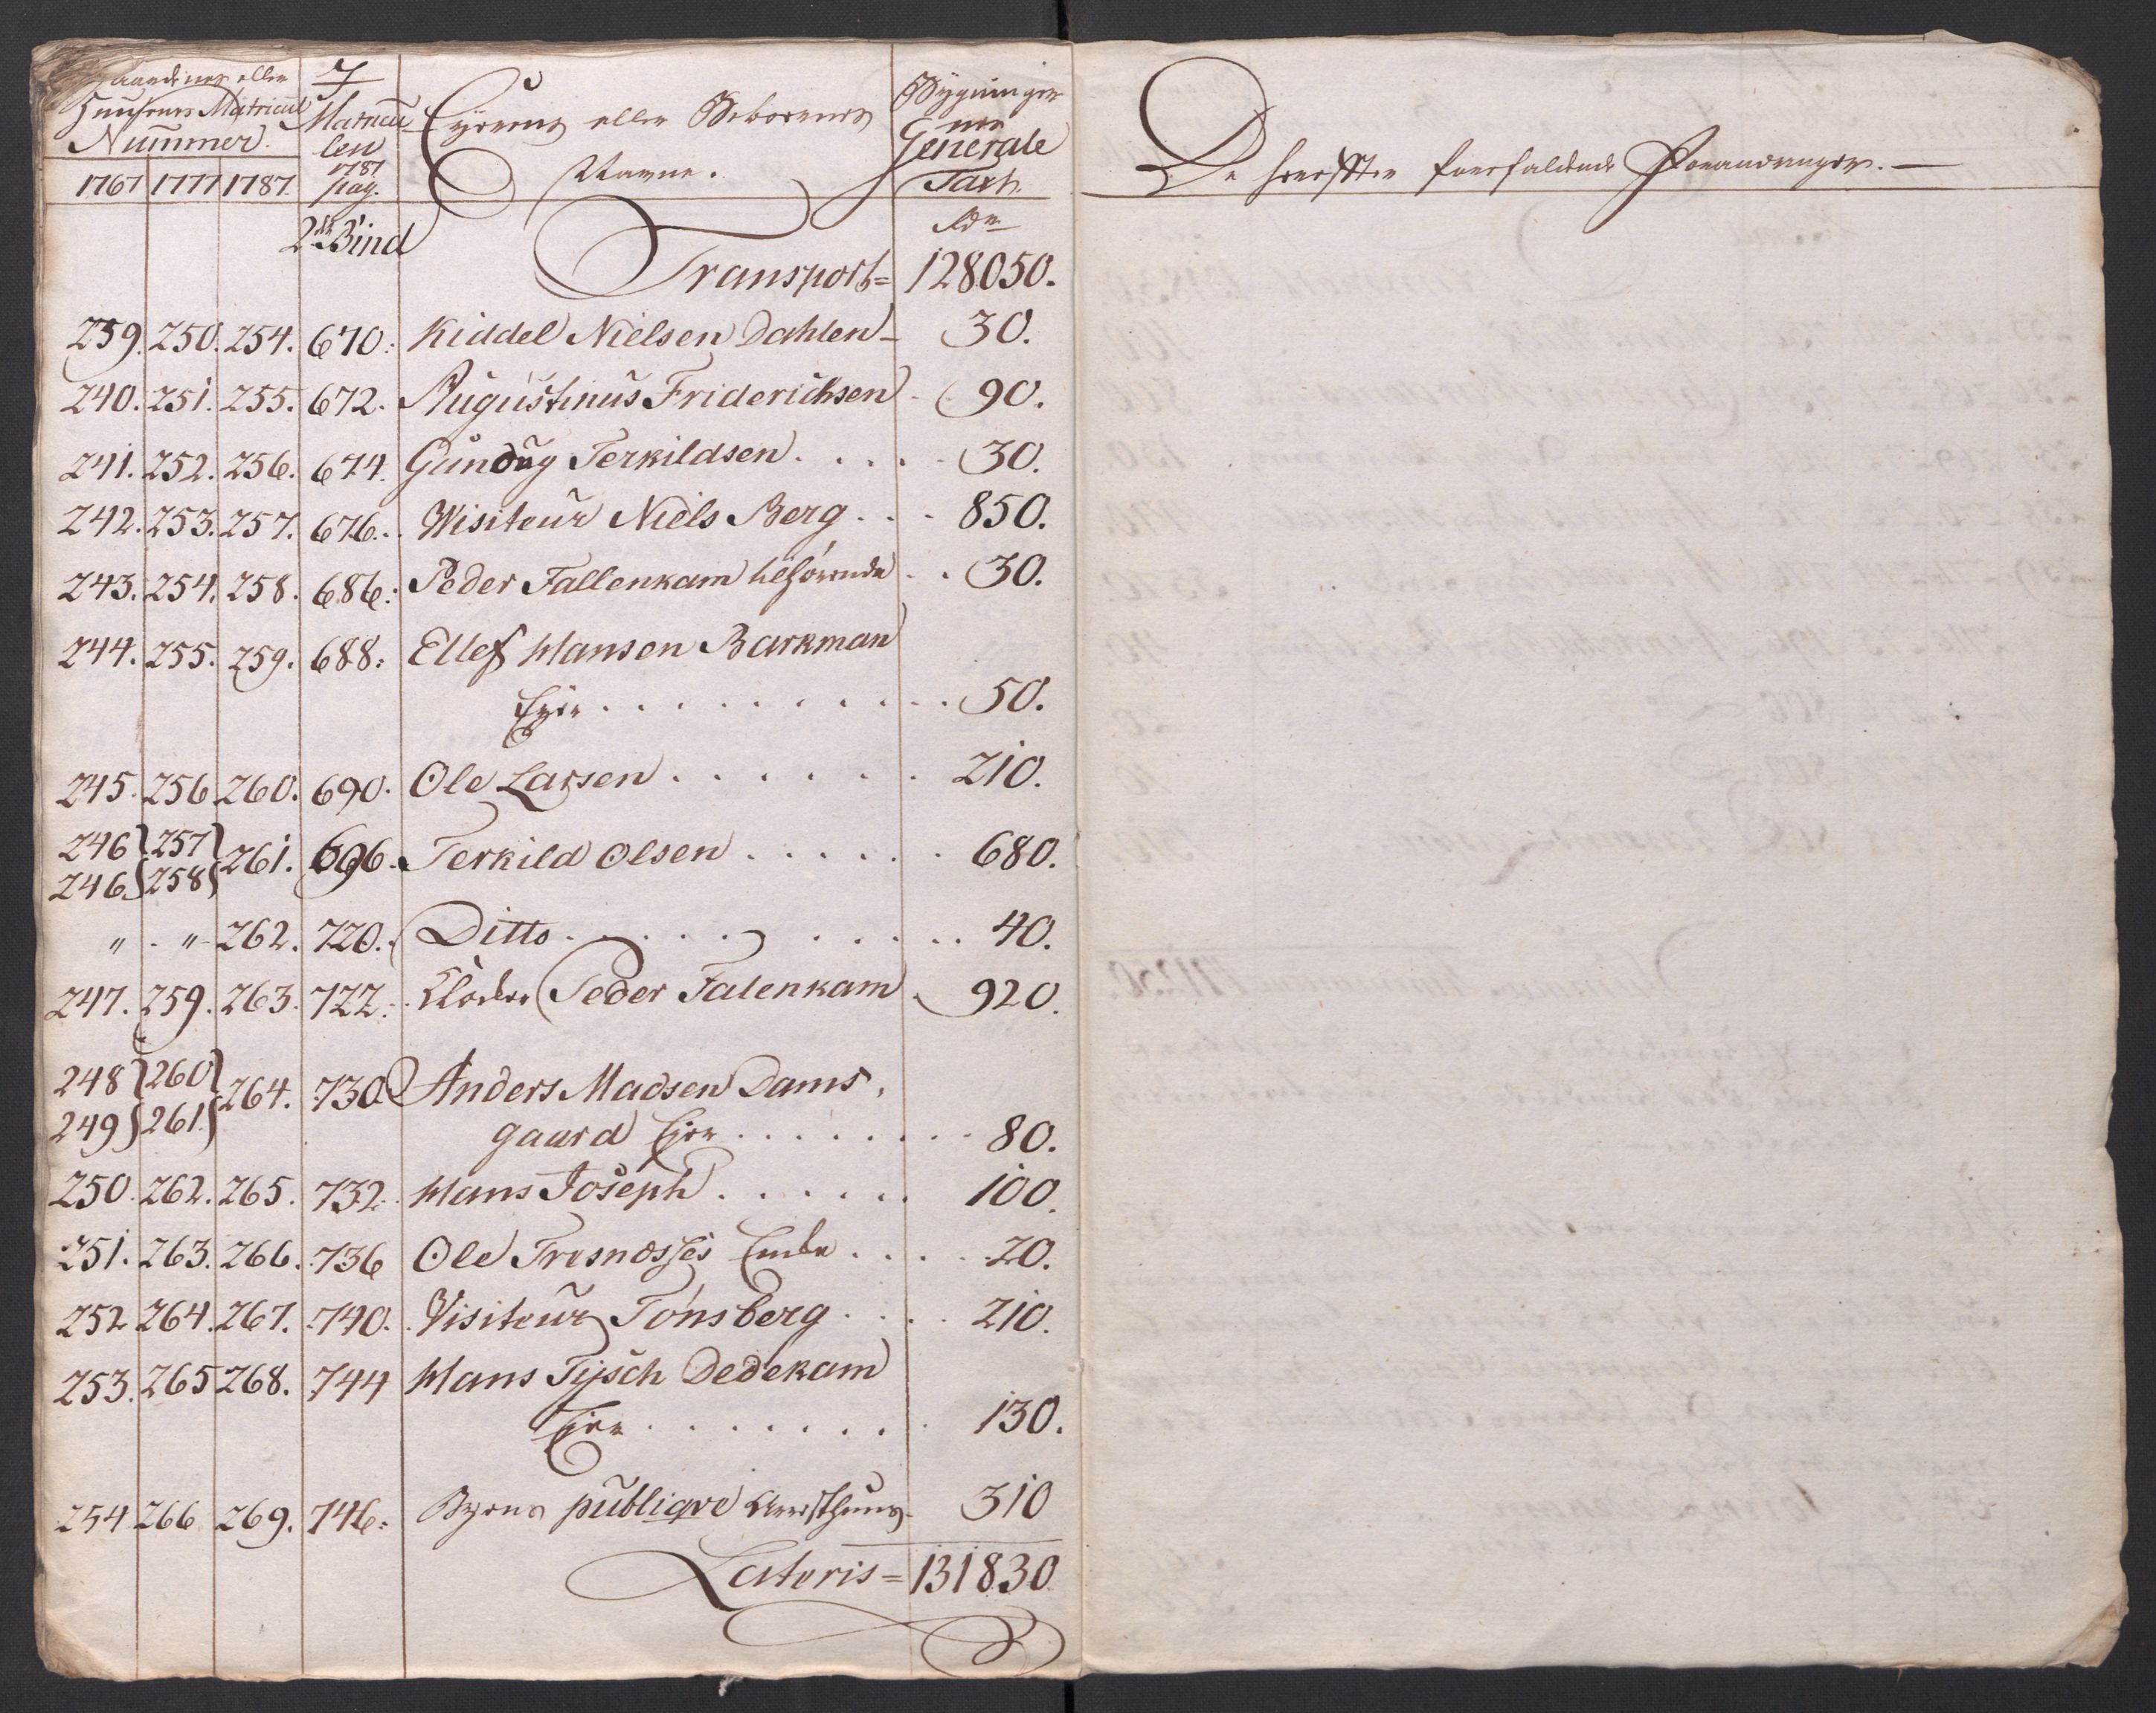 Gaardenes eller
Huusenes Matricul
Nummer.
1767 1777 1787.
7
Matricu
len
1787
pag.
Eyerens eller Beboerens
Navne.
Bygninger
nes
Generale
Taxt.
2de Bind
Rdr
Transport = 128050.
239. 250. 254. 670: Kiddel Nielsen Dahlen - 30.
240. 251. 255. 672. Augustinus Friderichsen - 90.
241. 252. 256. 674. Terkildsen . . . . 30.
242. 253. 257. 676. Visiteur Niels Berg . . . 850.
243. 254. 258. 686: Peder Fallenkam tilhørende . . 30.
244. 255. 259. 688: Ellef Hansen Barkman
Eyer . . . . . . . . . 50.
245. 256. 260. 690. Ole Larsen . . . . . . 210.
246 } 257 } 261. 696. Terkild Olsen . . . . . . 680.
246 } 258 }
" . " - 262. 720. Ditto . . . . . . . . 40.
247. 259. 263. 722. Peder Falenkam . 920.
248 } 260 } 264. 730. Anders Madsen Dams,
249 } 261 } gaard Ejer . . . . . . . 80.
250. 262. 265. 732. Hans Joseph . . . . . . 100.
251. 263. 266. 736 Ole Enke . . . . 20.
252 264. 267. 740. Visiteur Tønsberg . . . . 210.
253. 265 268. 744 Hans Tysch Dedekam
Ejer . . . . . . . 130.
254 266 269. 746: Byens publiqve 310
Lateris = 131830
De herefter forefaldende Forandringer. —